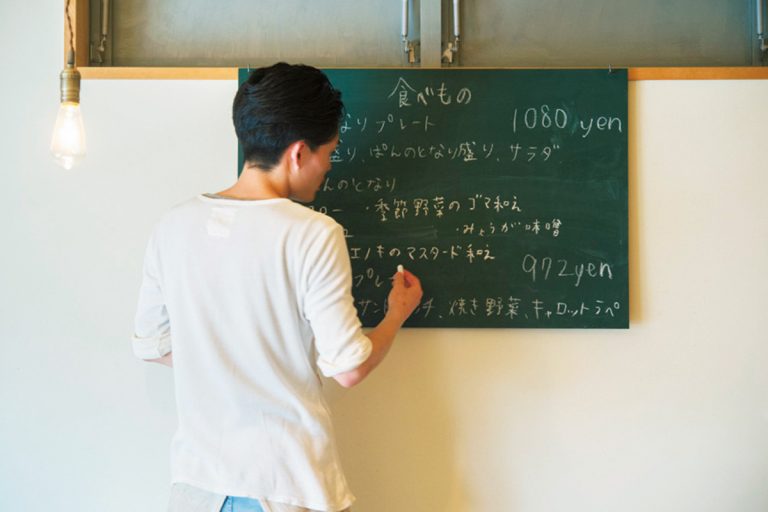 食べもの
なり プレート 1080 yen
盛り、ぱんのとなり盛り、サラダ
んのとなり
・季節野菜のゴマ和え
・みょうが味噌
エノキのマスタード和え
プレ 972yen
サン チ、焼き野菜、キャロットラペ